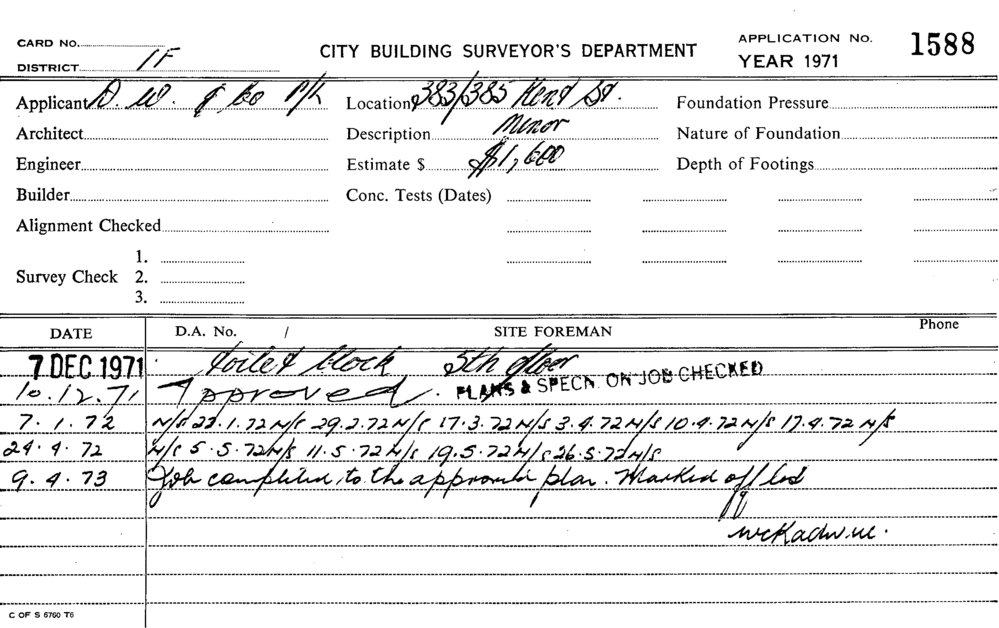 CARD No.
DISTRICT 1F
CITY BUILDING SURVEYOR'S DEPARTMENT
APPLICATION No. 1588
YEAR 1971
Applicant D. W. & Co P/L Location 383/385 Kent St. Foundation Pressure
Architect Description Minor Nature of Foundation
Engineer Estimate $ $1,600 Depth of Footings
Builder Conc. Tests (Dates)
Alignment Checked
1.
Survey Check 2.
3.
DATE D.A. No. / SITE FOREMAN Phone
7 DEC 1971 Toilet block 5th floor
10.12.71 Approved. PLANS & SPECN. ON JOB CHECKED
7.1.72 N/S 22.1.72 N/S 29.2.72 N/S 17.3.72 N/S 3.4.72 N/S 10.4.72 N/S 17.4.72 N/S
24.4.72 N/S 5.5.72 N/S 11.5.72 N/S 19.5.72 N/S 26.5.72 N/S
9.4.73 Job completed to the approved plan. Marked off
C OF S 6760 T6